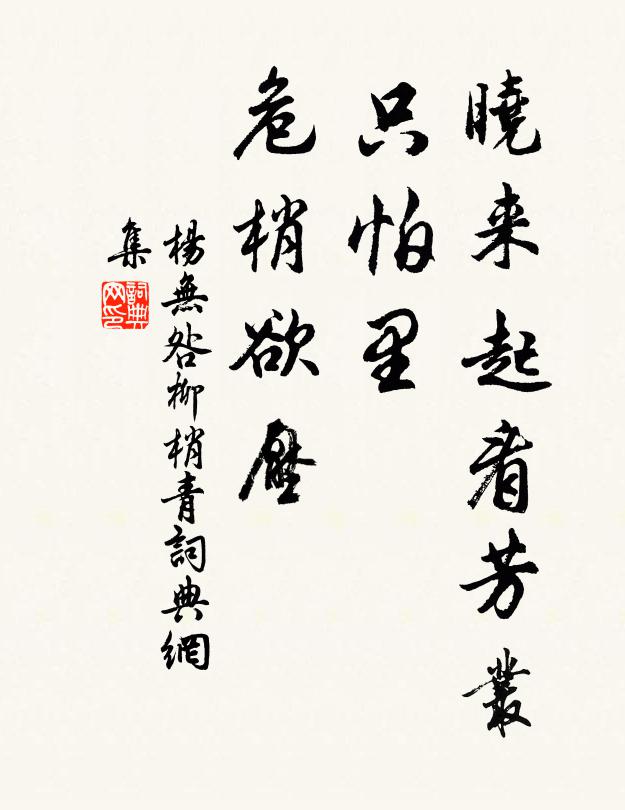 曉来起看芳叢
只怕里
危梢欲壓
楊無咎柳梢青詞典網
集
詞典
网印